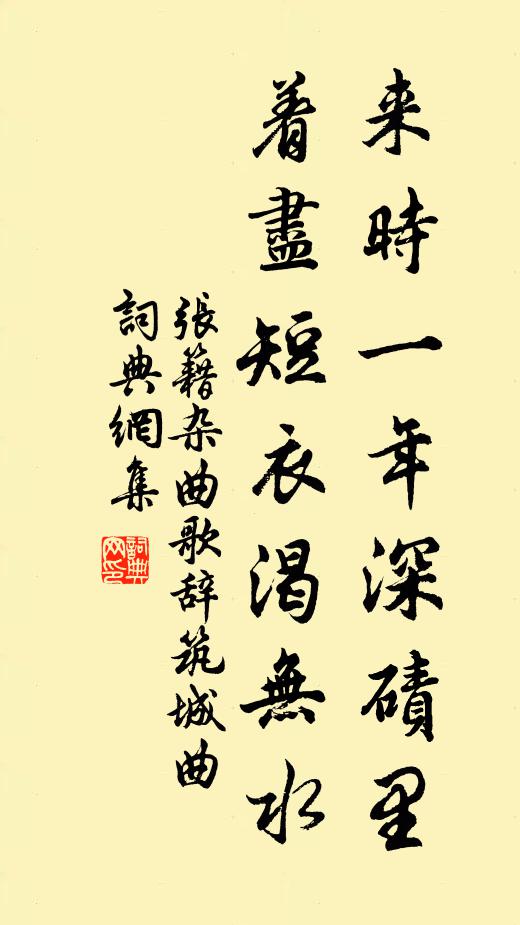 来時一年深磧里
着盡短衣渴無水
張籍杂曲歌辞筑城曲
詞典網集
詞典网印